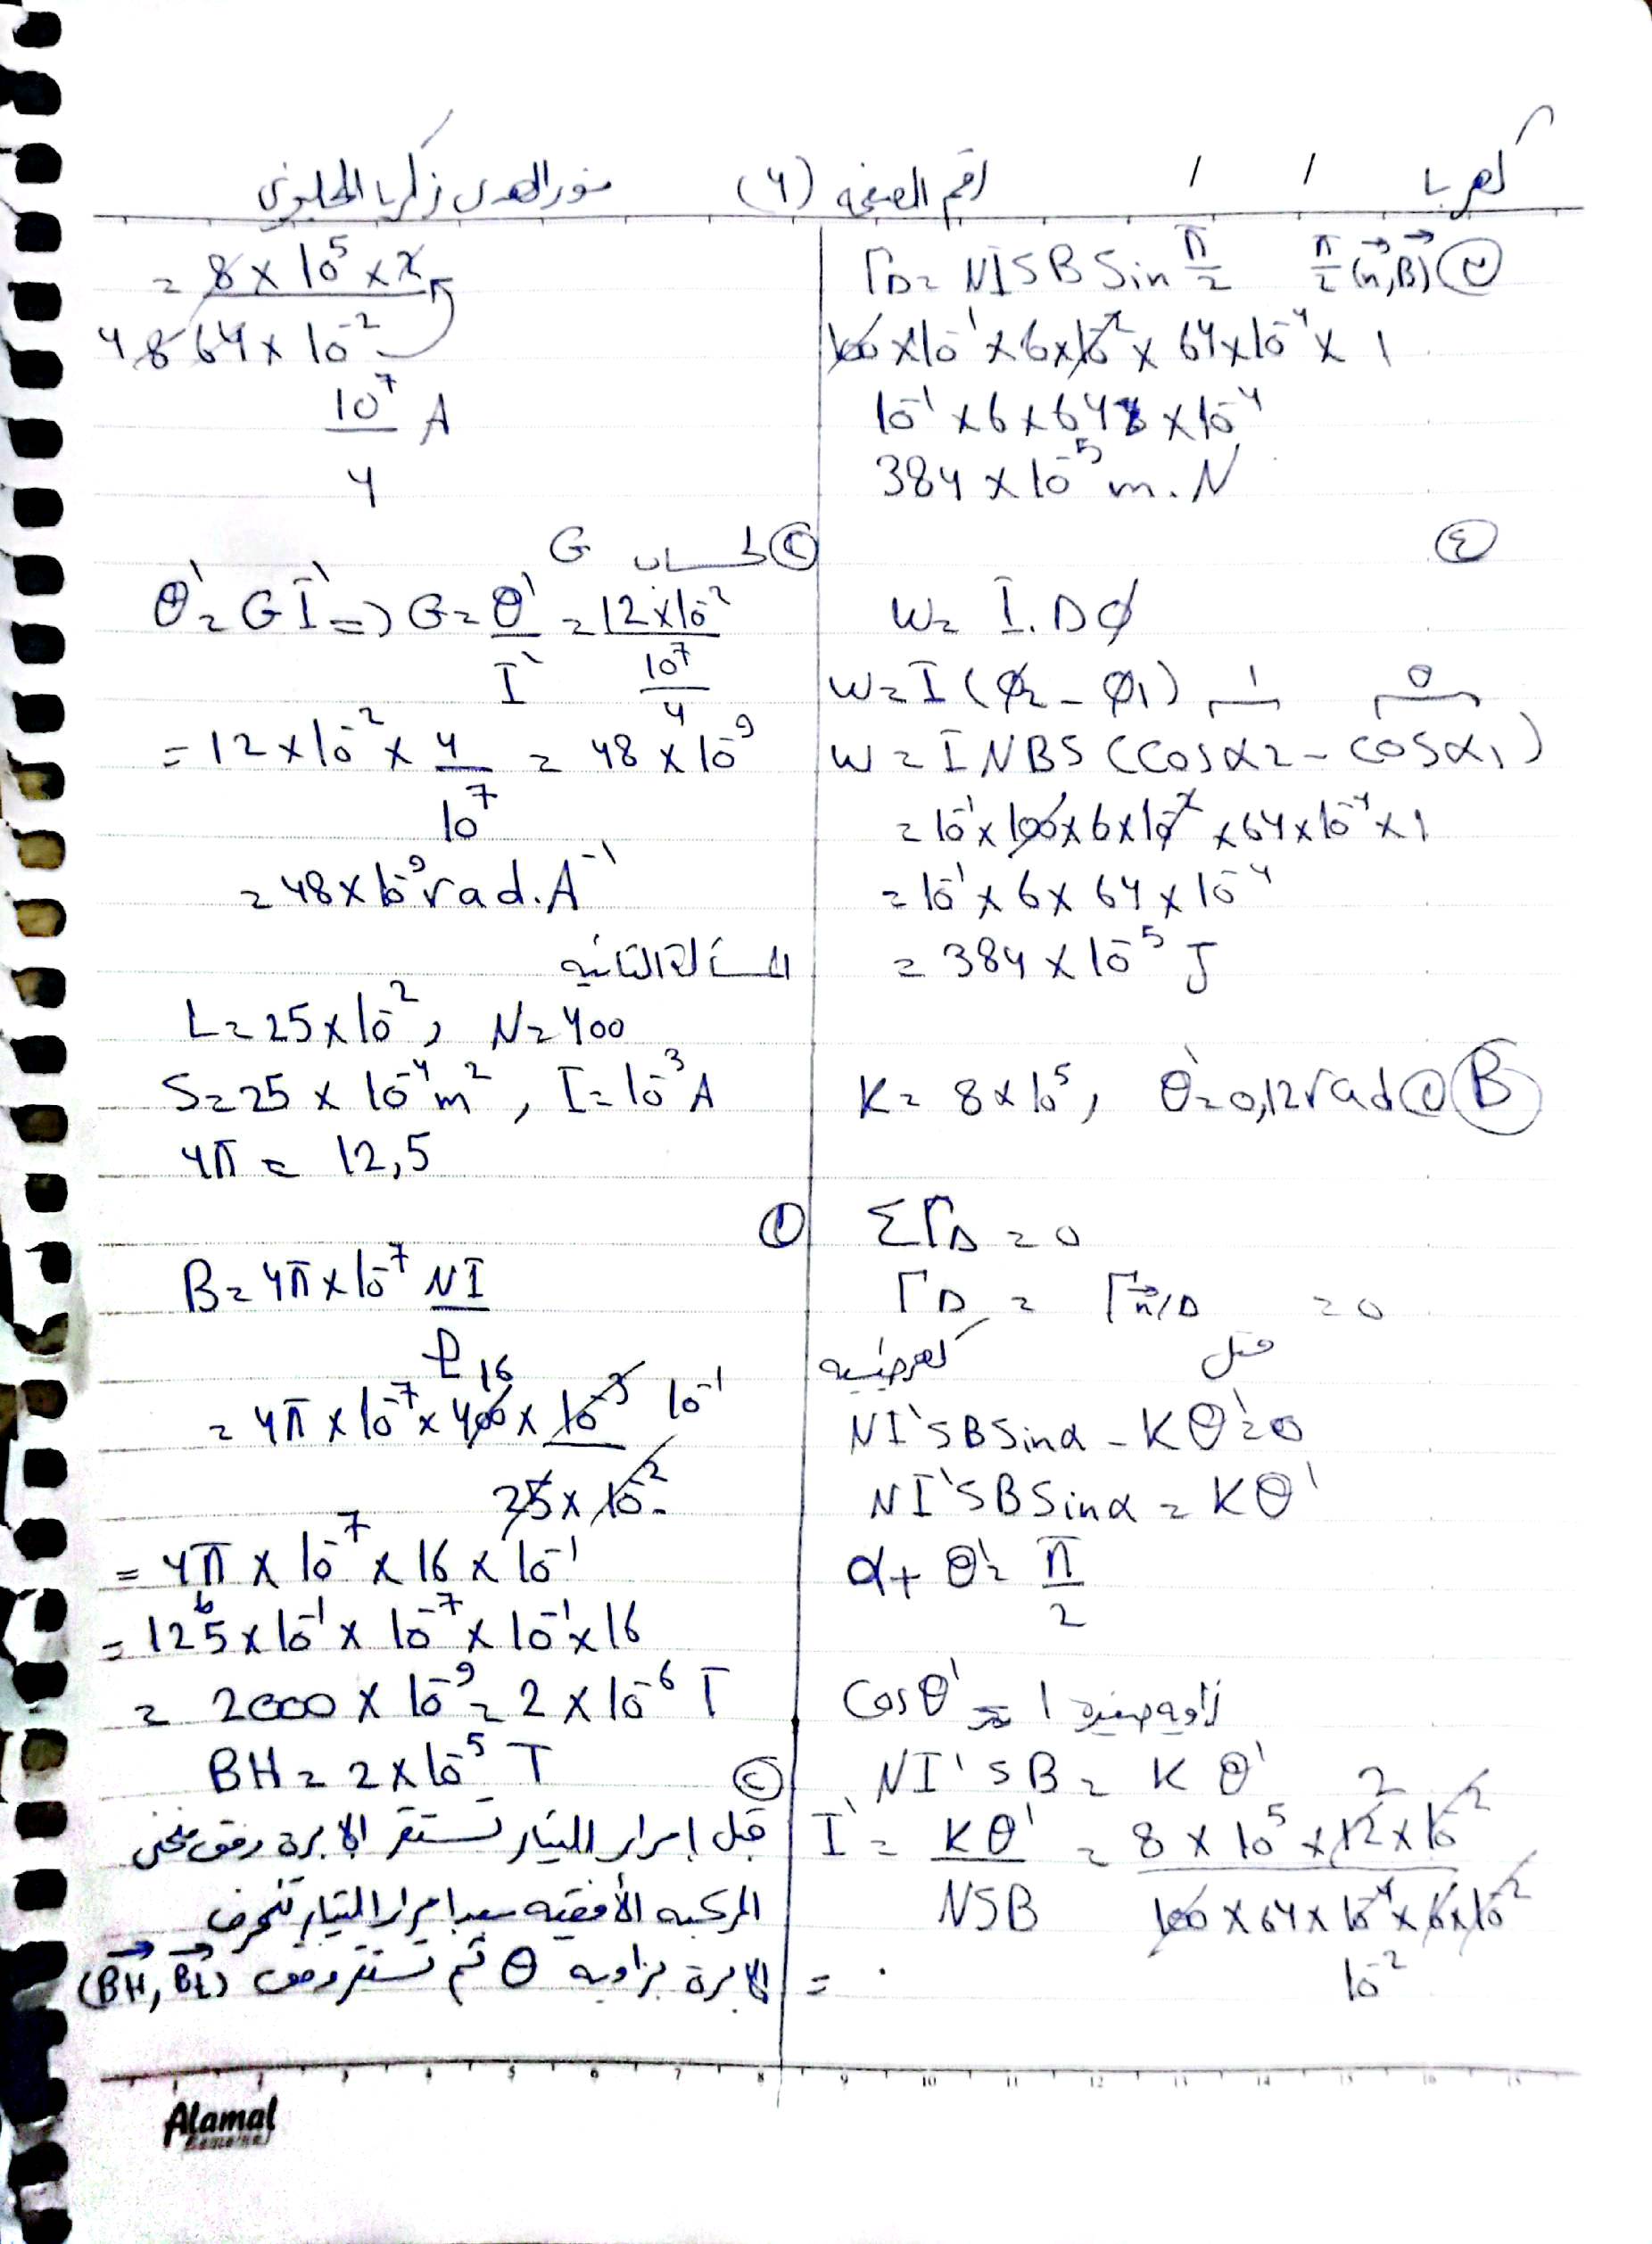 كهربا / / رقم الصفحة (4) نور الهدى زكريا الحلبوني
Γ∆= NISB Sin π/2 π/2 (n→,B→) ③
100 × 10⁻¹ × 6×10⁻² × 64×10⁻⁴ × 1
10⁻¹ × 6 × 64 × 10⁻⁴
384 × 10⁻⁵ m.N
④
W= I.∆ϕ
W= I (ϕ2 - ϕ1) 1 0
W = INBS (Cosα2 - cosα1)
= 10⁻¹ × 100 × 6 × 10⁻² × 64 × 10⁻⁴ × 1
= 10⁻¹ × 6 × 64 × 10⁻⁴
= 384 × 10⁻⁵ J
K= 8 × 10⁵, θ'= 0,12 rad ① B
ΣΓ∆ = 0
Γ∆ = Γn→/∆ = 0
كهرطيسية فتل
NI'SBSinα - Kθ'=0
NI'SBSinα = Kθ'
α + θ'= π/2
Cosθ' ≈ 1 زاوية صغيرة
NI'SB = Kθ'
I' = Kθ'/NSB = 8 × 10⁵ × 12 × 10⁻² 2 / 100 × 64 × 10⁻⁴ × 6 × 10⁻²
10⁻²
=
= 8 × 10⁵ × 2
4 8 64 × 10⁻²
10⁷/4 A
② لحساب G
θ'= GI' => G= θ'/I' = 12×10⁻² / 10⁷/4
= 12 × 10⁻² × 4/10⁷ = 48 × 10⁻⁹
= 48 × 10⁻⁹ rad.A⁻¹
المسألة الثانية
L= 25 × 10⁻², N= 400
S= 25 × 10⁻⁴ m², I= 10⁻³ A
4π = 12,5
①
B= 4π × 10⁻⁷ NI/ℓ
= 4π × 10⁻⁷ × 400 16 × 10⁻³ 10⁻¹ / 25 × 10⁻²
= 4π × 10⁻⁷ × 16 × 10⁻¹
= 125 × 10⁻¹ × 10⁻⁷ × 10⁻¹ × 16
= 2000 × 10⁻⁹ = 2 × 10⁻⁶ T
BH = 2 × 10⁻⁵ T ②
قبل إمرار التيار تستقر الابرة وفق منحى
المركبة الأفقية بعد امرار التيار تنحرف
الابرة بزاوية θ ثم تستقر وفق (BH→, Bt→)
Alamal